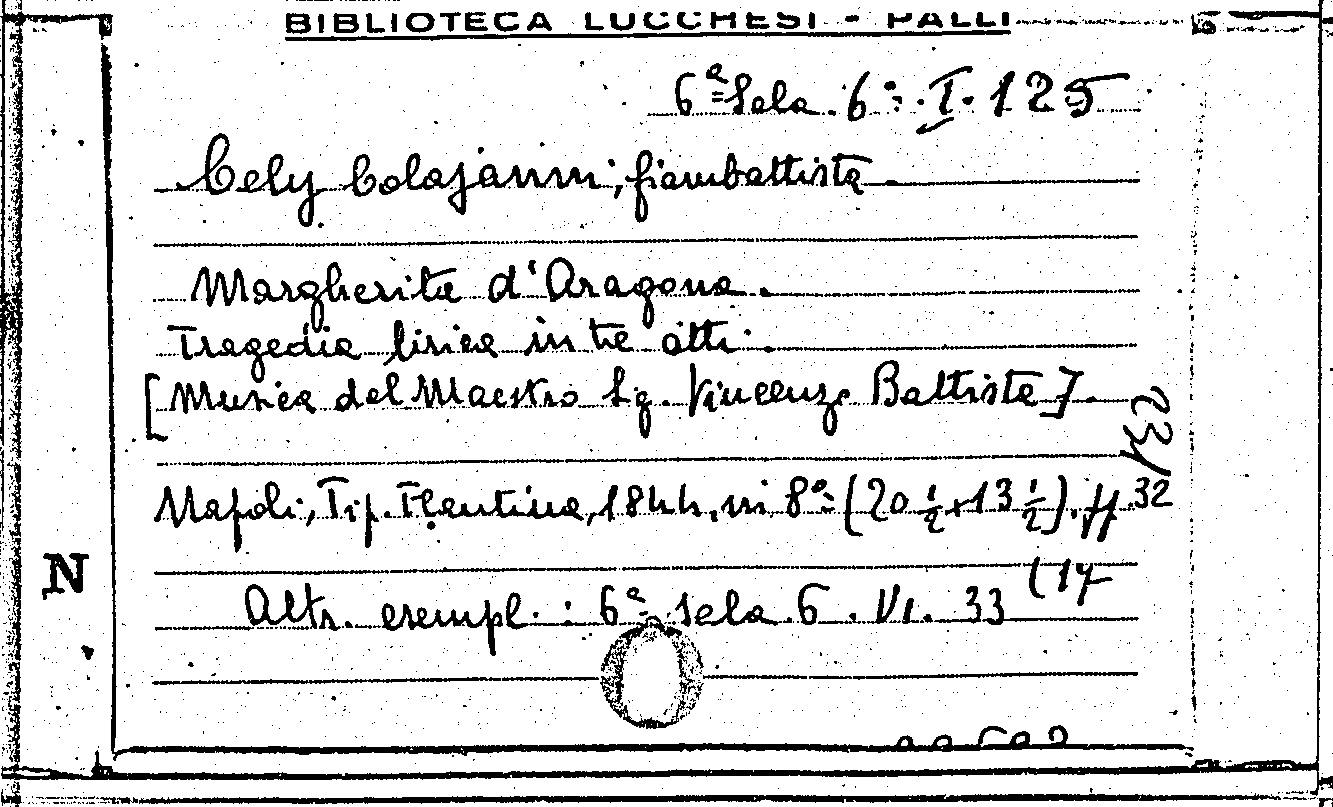 BIBLIOTECA LUCCHESI - PALLI
6ª Sala. 6º. I. 125
Cely Colajanni, Giambattista.
Margherita d'Aragona.
Tragedia lirica in tre atti.
[Musica del Maestro Sig. Vincenzo Battista].
231
Napoli, Tip. Flautina, 1844. in 8º (20 ½ x 13 ½). pp. 32
(17
N
Altr. esempl.: 6ª Sala. 6. VI. 33